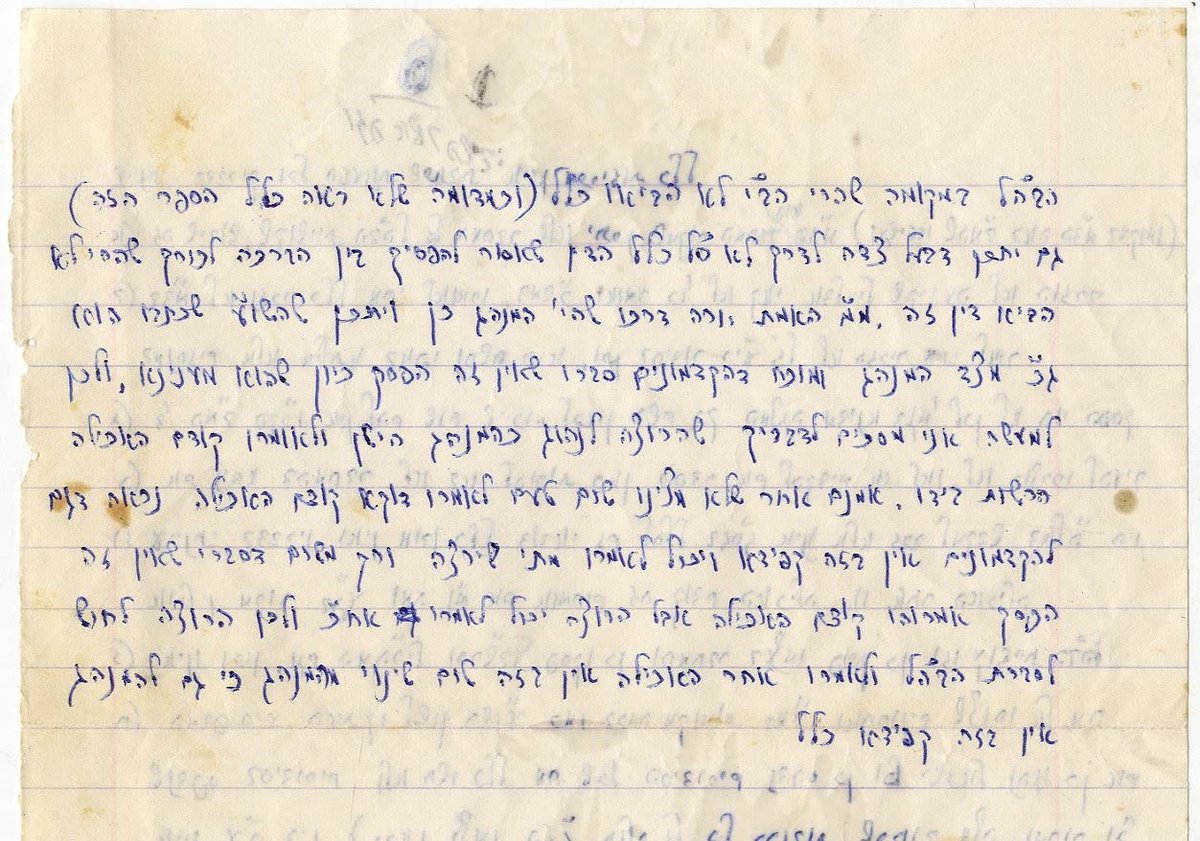 הבה"ל במקומה שהרי הב"י לא הביאו כלל (וכמדומה שלא ראה כלל הספר הזה)
גם יתכן דבעל צדה לדרך לא ס"ל כלל הדין שאסור להפסיק בין הברכה לכורך שהרי לא
הביאו דין זה. מ"מ האמת יורה דרכו שהי' המנהג כן ויתכן שהשו"ע שכתבו הוא
ג"כ מצד המנהג ומוכח דהקדמונים סברו שאין זה הפסק כיון שהוא מעניינא, ולכן
למעשה אני מסכים לדבריך שהרוצה לנהוג כהמנהג הישן ולאומרו קודם האכילה
הרשות בידו. אמנם אחר שלא מצינו שום טעם לאמרו דוקא קודם האכילה נראה דגם
להקדמונים אין בזה קפידא ויכול לאומרו מתי שירצה ורק משום דסברי שאין זה
הפסק אמרוהו קודם האכילה אבל הרוצה יכול לאמרו אח"כ ולכן הרוצה לחוש
לסברת הבה"ל ולאמרו אחר האכילה אין בזה שום שינוי מהמנהג כי גם להמנהג
אין בזה קפידא כלל